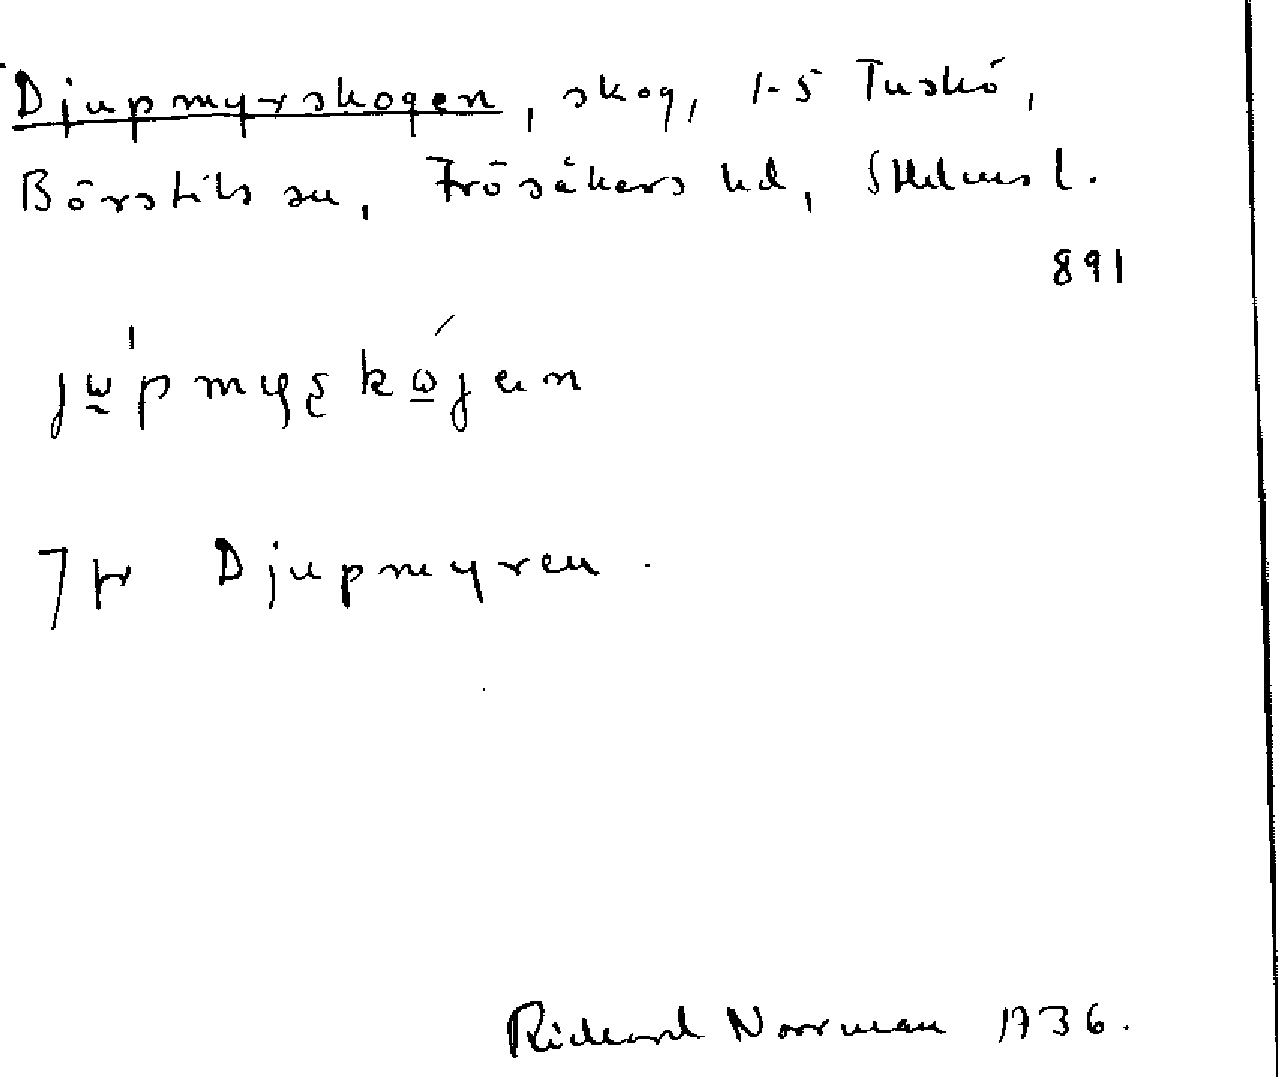 Djupmyrskogen, skog, 1-5 Tuskö,
Börstils sn, Frösåkers hd, Sthlms l.
891
Djupmyren.
Rickard Norrman 1936.